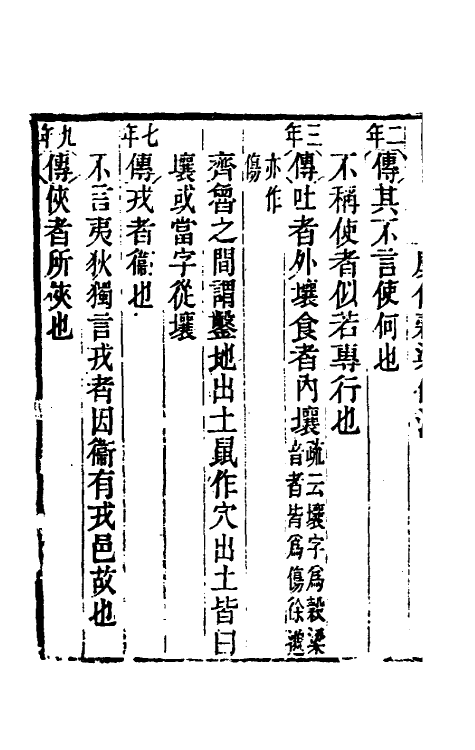 二年
傳其不言使何也
不稱使者似若專行也
三年
傳吐者外壤食者內壤疏云壤字為穀梁
音者皆為傷徐邈
亦作
傷
齊魯之間謂鑿地出土鼠作穴出土皆曰
壤或當字從壤
七年
傳戎者衞也
不言夷狄獨言戎者因衞有戎邑故也
九年
傳俠者所俠也